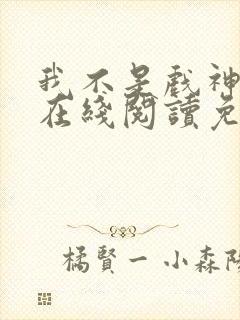 我不是戲神
在綫閱讀免
橘賢一 小森陽